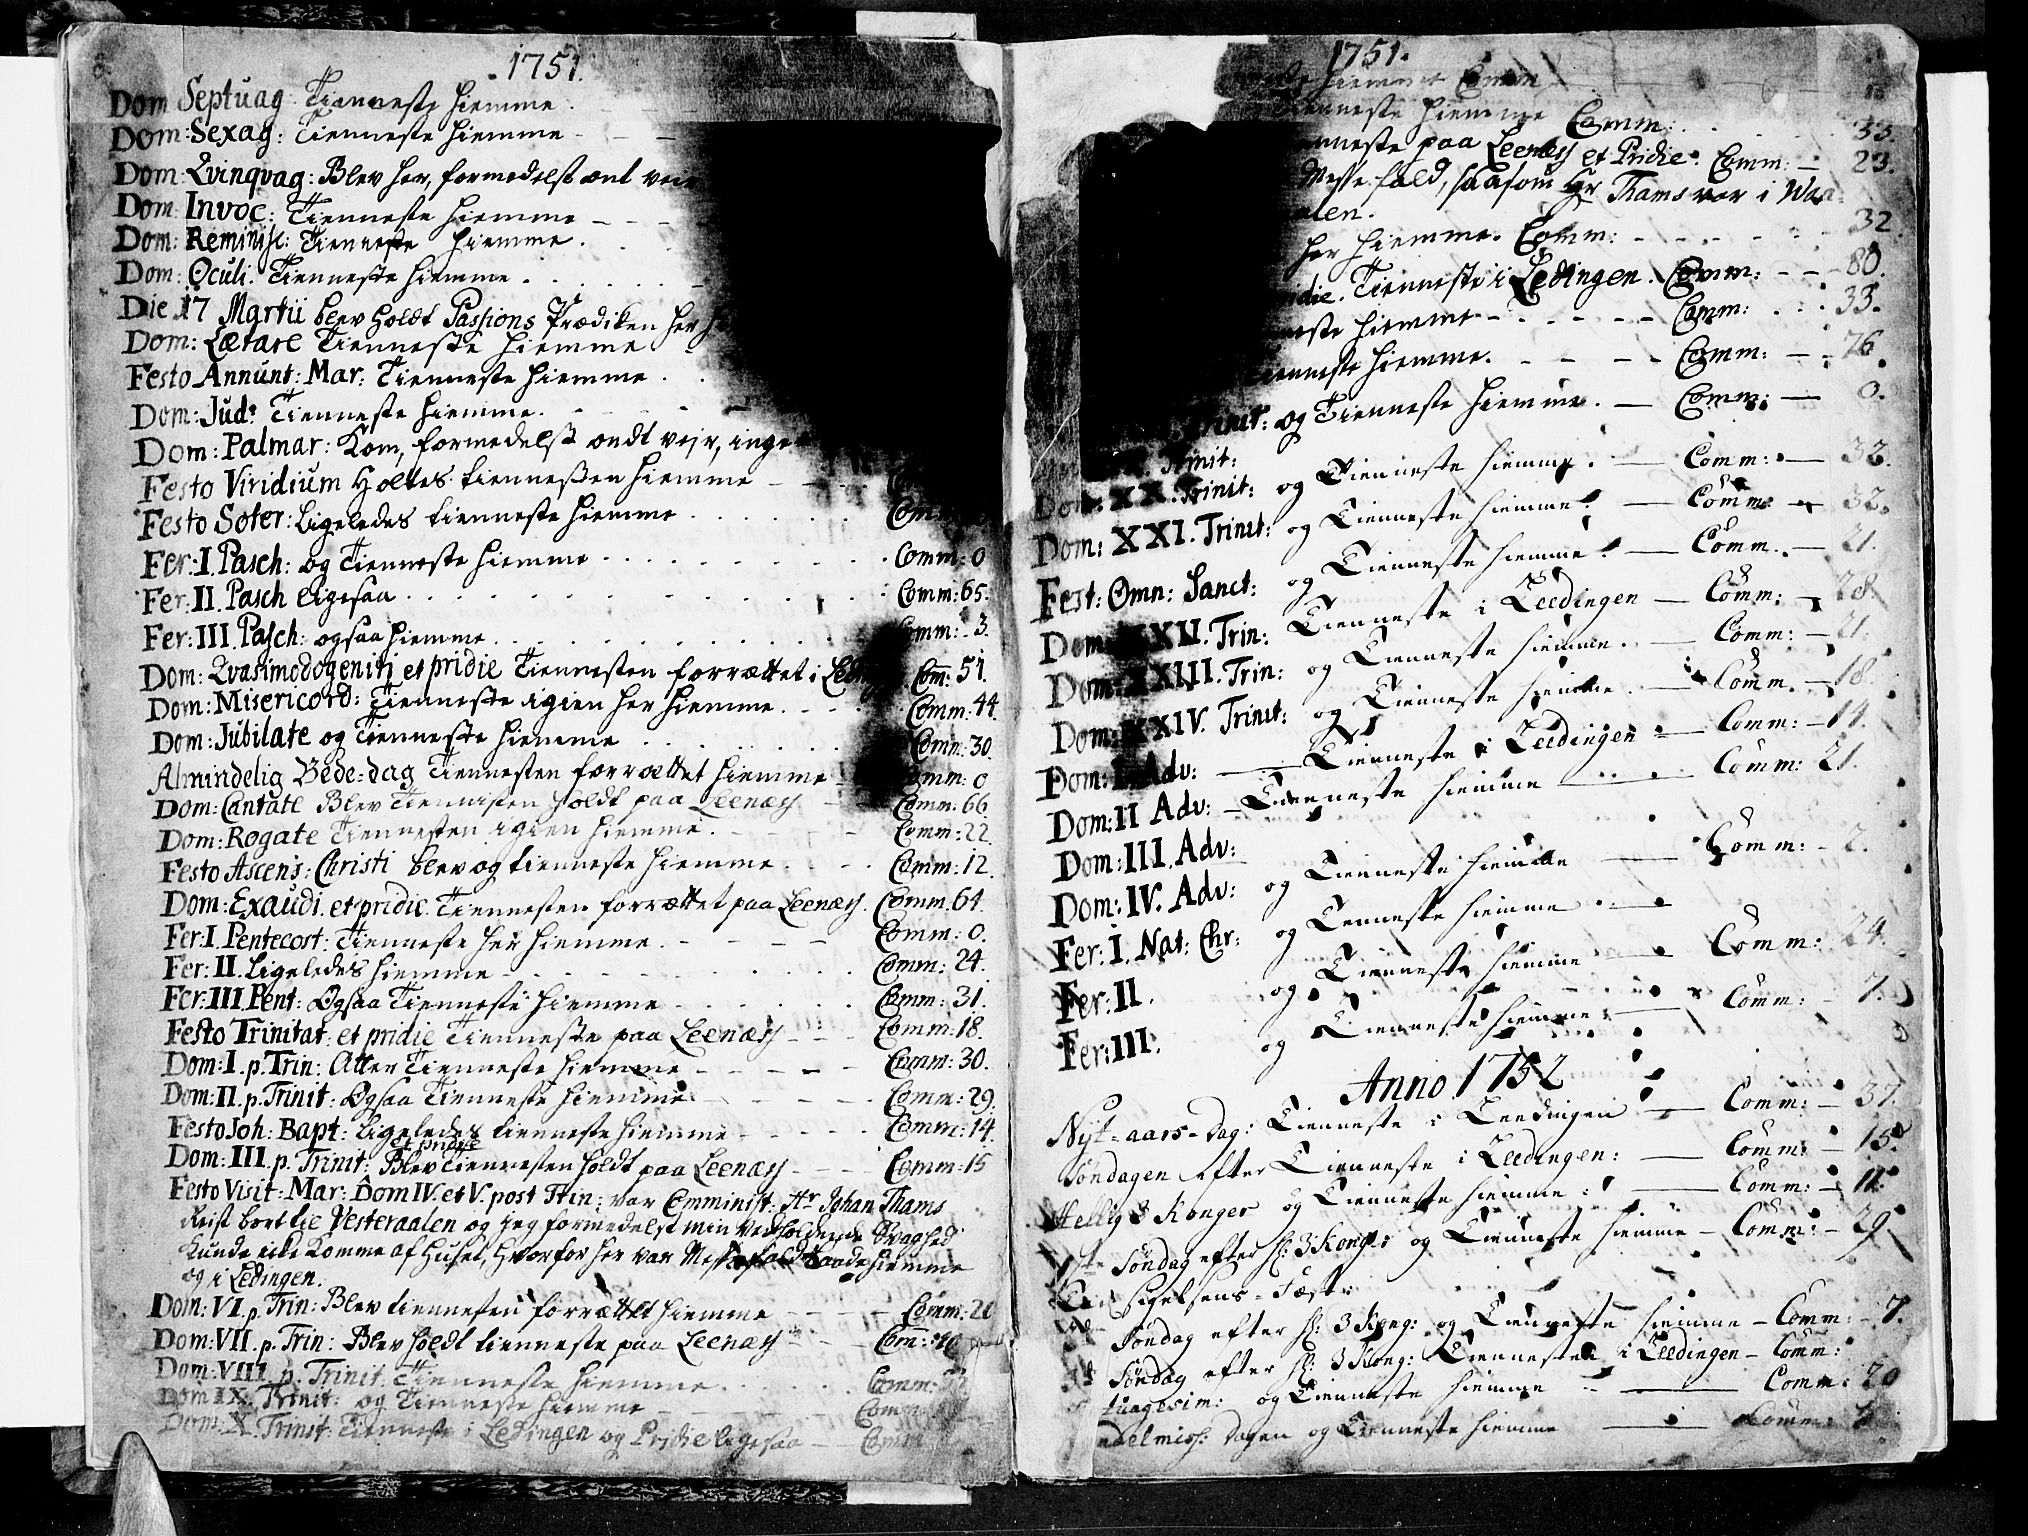 1751.
Dom Septuag: Tienneste hiemme.
Dom: Sexag: Tienneste hiemme
Dom: Qvinqvag: Blev her, formedelst ont veir
Dom: Invoc: Tienneste hiemme
Dom: Reminisc: Tienneste hiemme.
Dom: Oculi. Tienneste hiemme.
Die 17 Martii blev holdt Passions Prædiken her
Dom: Lætare Tienneste hiemme
Festo Annunt: Mar: Tienneste hiemme.
Dom: Jud: Tienneste hiemme.
Dom: Palmar: Kom, formedelst ondt veir,
Festo Viridium Holtes tiennesten hiemme
Festo Soter: Ligeledes tienneste hiemme
Fer: I. Pasch: og Tienneste hiemme Comm: 0
Fer: II. Pasch ligesaa Comm: 65.
Fer: III. Pasch: ogsaa hiemme. Comm: 3.
Dom: Qvasimodogeniti et pridie Tiennesten forrættet i Com: 51.
Dom: Misericord: Tienneste igien her hiemme. Comm: 44.
Dom: Jubilate og Tienneste hiemme Comm: 30.
Almindelig Bede-dag Tiennesten forrættet hiemme Comm: 0
Dom: Cantate Blev Tiennisten holdt paa Leenæs Comm: 66
Dom: Rogate Tiennesten igien hiemme. Comm: 22.
Festo Ascens: Christi blev og tienneste hiemme Comm: 12.
Dom: Exaudi. et pridie. Tiennesten forrættet paa Leenæs. Comm. 64.
Fer: I. Pentecost: Tienneste her hiemme. Comm: 0.
Fer: II. Ligeledes hiemme Comm: 24.
Fer: III. Pent: Ogsaa Tienneste hiemme Comm: 31.
Festo Trinitat: et pridie Tienneste paa Leenæs Comm: 18.
Dom: I. p. Trin: Atter Tienneste hiemme Comm: 30.
Dom: II. p. Trinit: Ogsaa Tienneste hiemme Comm: 29.
Festo Joh: Bapt: Ligeledes tienneste hiemme Comm: 14.
et pridie
Dom: III. p. Trinit: Blev Tiennesten holdt paa Leenæs Comm: 15
Festo Visit: Mar: Dom IV. et V. post Trin: var Comminist: Hr Johan Thams
Reist bort til Vesteraalen og jeg formedelst min vedholdende Svaghed
kunde icke komme af Huset, hvorfor her var Messefald baade hiemme
og i Ledingen.
Dom: VI. p. Trin: Blev tiennesten forrættet hiemme Comm: 21
Dom: VII. p. Trin: Blev holdt tienneste paa Leenæs Com:
Dom: VIII. p. Trinit: Tienneste hiemme. Comm:
Dom IX. Trinit: og Tienneste hiemme Comm
Dom: X. Trinit: Tienneste i Ledingen og Pridie ligesaa Comm
1751.
hiemmet Comm
Tienneste hiemme Comm: 33.
paa Leenæs et Pridie. Comm: 23.
Messefald, saasom Hr Thams var i Waa-
alen.
her hiemme. Comm: 32
Tienneste i Ledingen. Comm: 80.
hiemme Comm: 33.
Tienneste hiemme. Comm: 76.
Trinit: og Tienneste hiemme. Comm: 0.
Trinit:
Dom: XX. Trinit: og Tienneste hiemme. Comm: 32.
Dom: XXI. Trinit: og Tienneste hiemme. Comm: 32.
Fest: Omn: Sanct: og Tienneste hiemme. Comm. 21.
Dom: XXII. Trin: Tienneste i Leedingen Comm: 28.
Dom: XXIII. Trin: og Tienneste hiemme. Comm: 21.
Dom: XXIV. Trinit: og Tienneste hiemme. Comm. 18.
Dom: I. Adv: Tienneste i Leedingen Comm: 14.
Dom: II Adv: Tienneste hiemme Comm: 21.
Dom: III. Adv:
Dom: IV. Adv: og Tienneste hiemme Comm: 2.
Fer: I. Nat: Chr: og Tienneste hiemme
Fer: II. og Tienneste hiemme Comm: 24.
Fer: III. og Tienneste hiemme Comm: 7.
Anno 1752
Nyt-aars-dag: Tienneste i Leedingen Comm: 37.
Söndagen efter Tienneste i Leedingen: Comm: 15.
Hellig 3 Konger og Tienneste hiemme: Comm: 11.
1ste Søndag efter h: 3 Kong: og Tienneste hiemme Comm: 29.
Søndag efter h: 3 Kong: og Tienneste hiemme Comm: 7.
Søndag efter h: 3 Kong: Tiennesten i Leedingen Comm:
tuagesim: og Tienneste hiemme Comm: 20
delmiss: dagen og Tienneste hiemme Comm: